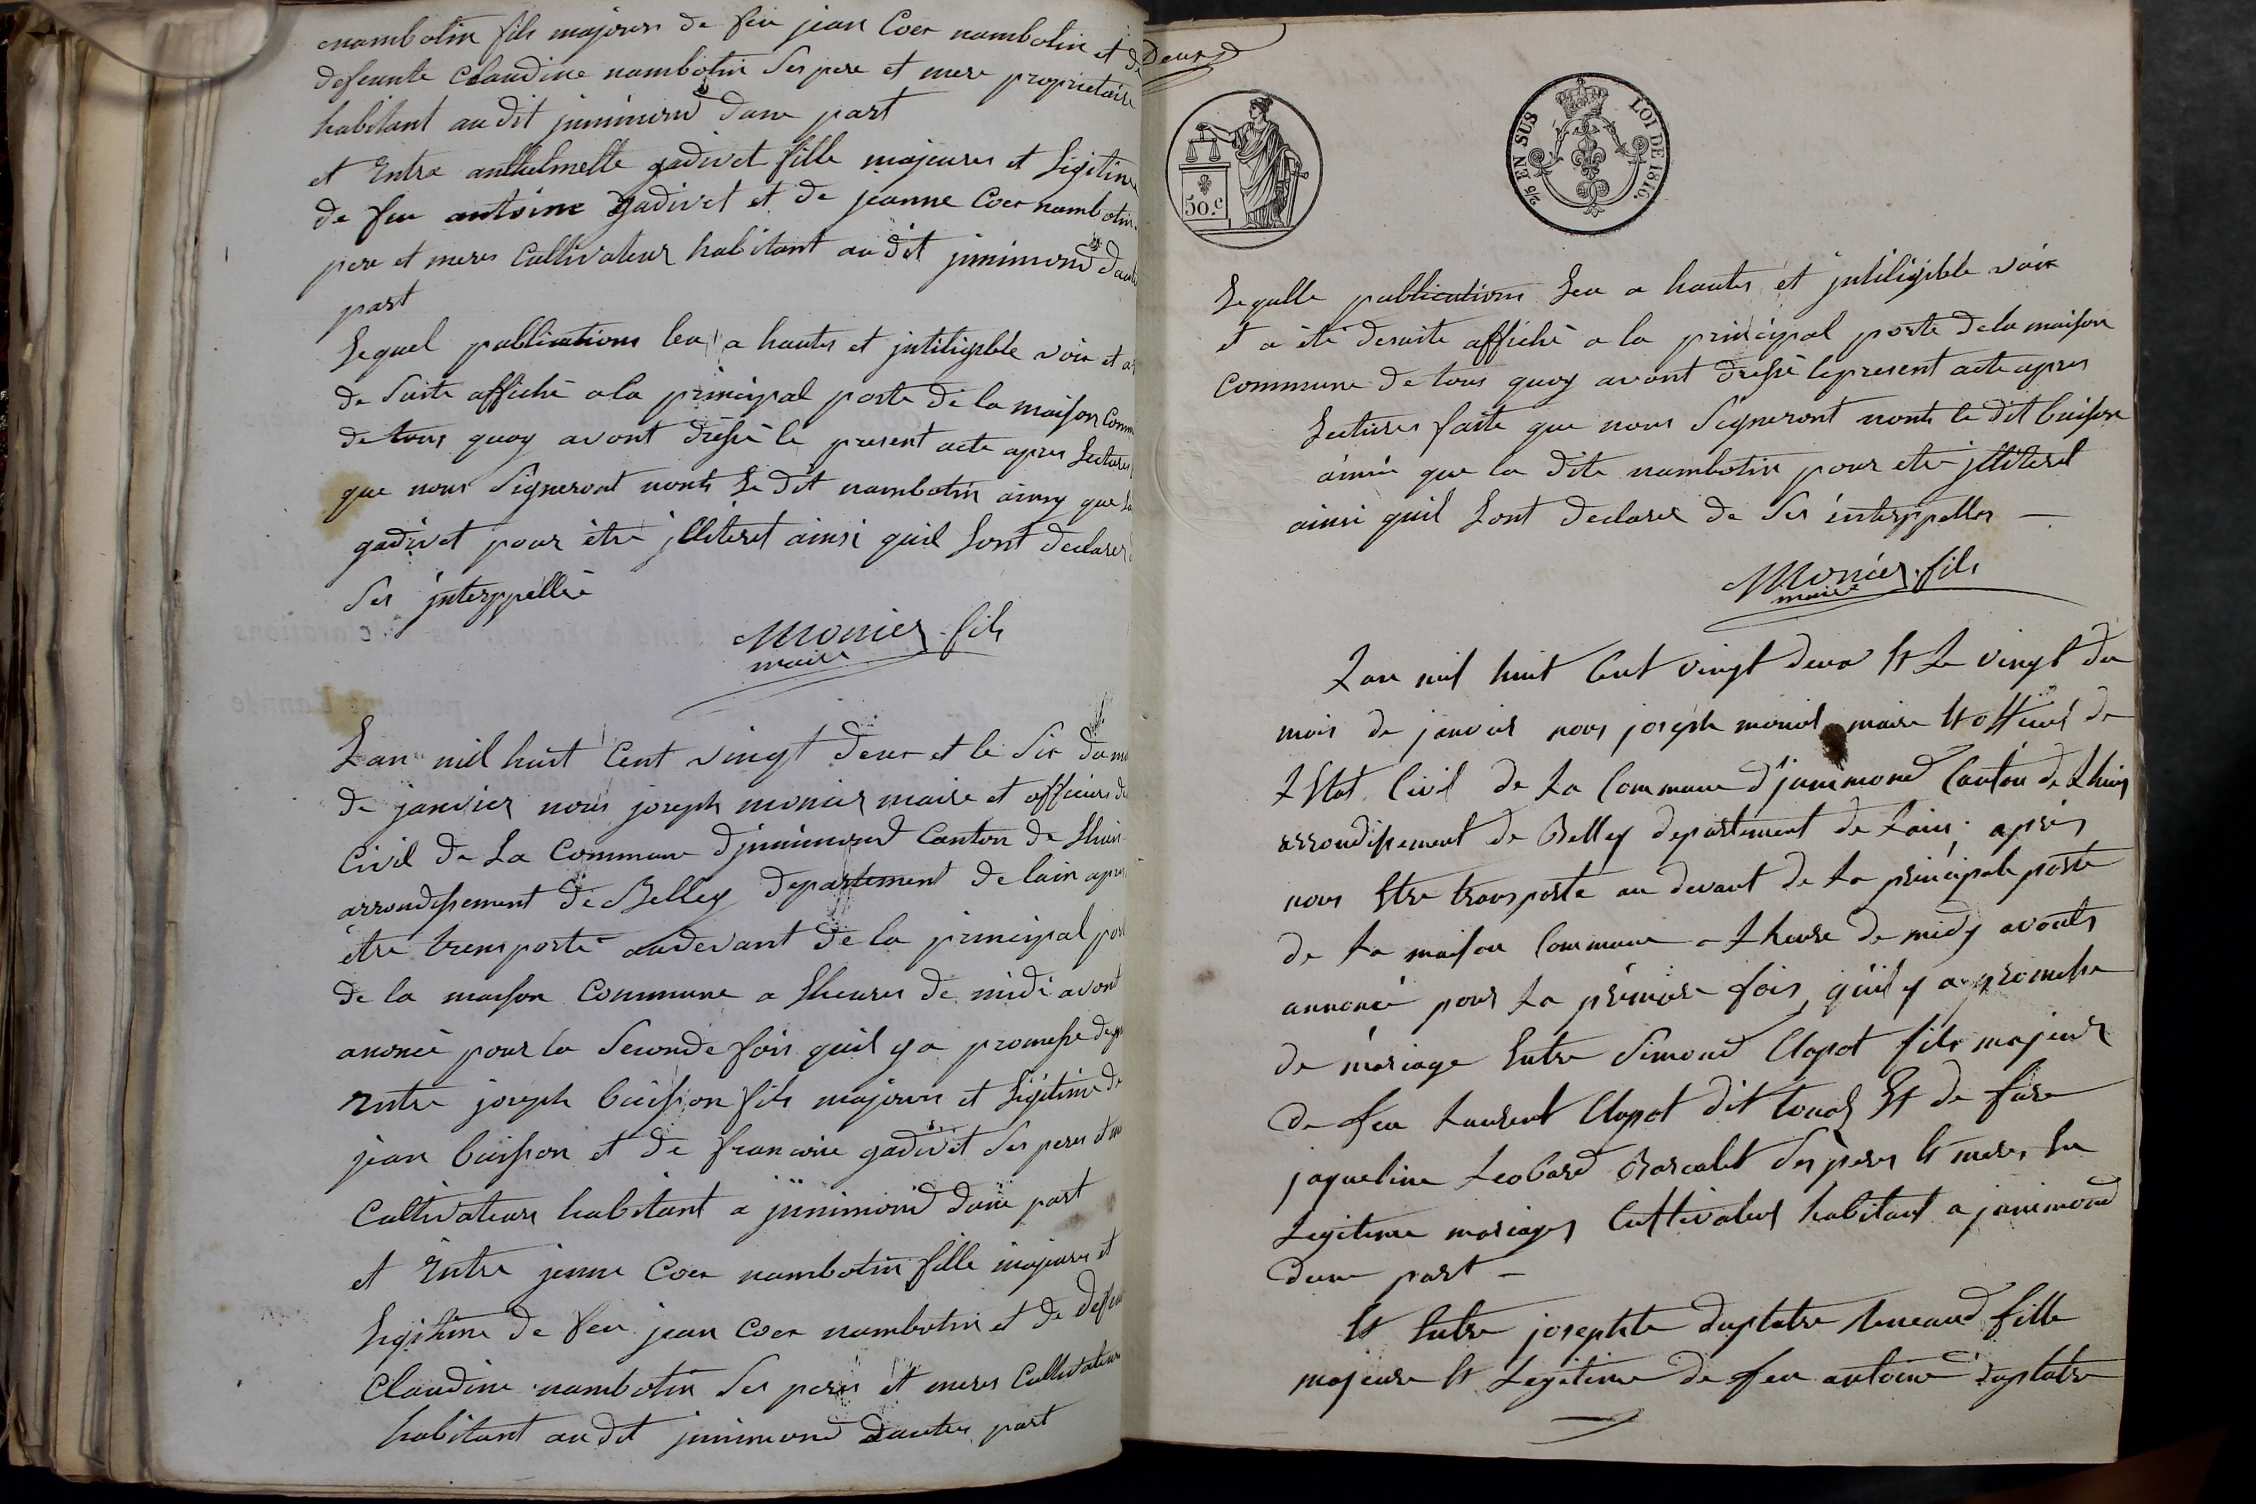 nambotin fils majours de feu jean Coer nambotin et de
defeunte Claudine nambotin Ses pere et mere proprietaire
habitant au dit jnnimond dune part
et Entre anthelmette gadivet fille majeures et Ligitime
de feu antoine gadivet et de jeanne Coer nambotin
pere et meres Cultivateur habitant au dit jnnimond dautre
part
Lequel publications leu a hautes et jntiligible voix et a
de Suite affiché a la principal porte de la maison Comm
de tous quoy avont dressé le present acte apres Lectures
que nous Signeront nonts Le dit nambotin ainsy que La
gadivet pour être jlliteret ainsi quil Sont declarer d
Ses jnterppellée
Monier fils
maire
Lan mil huit Cent vingt deux et le Six du m
de janvier nous joseph monier maire et officiers de
Civil de La Commune djnnimond Canton de Lhuis
arrondissement de Belley departement de lain apres
être transporté audevant de la principal port
de la maison Commune a Lheures de midi avont
anoncé pour la Seconde fois quil y a promesse de
Entre joseph buisson fils majours et Ligitime de
jean buisson et de francoise gadivet Ses peres et m
Cultivateurs habitant a jnnimond dune part
et Entre jenne Coer nambotin fille majeures et
Legitime de feu jean Coer nambotin et de deffeu
Claudine nambotin Ses peres et meres Cultivateurs
habitant au dit jnnimond Dautres part
Deux
50.c
2/5 EN SUS LOI DE 1816.
Lequelle publications Leu a hautes et jntiligible voix
et a été desuite affiché a la principal porte dela maison
Commune de tous quoy avont dressé lepresent acte apres
Lectures faite que nous Signeront nonts le dit buisson
ainsi que la dite nambotin pour etre jlliteret
ainsi quil Sont declarer de Ses interppeller
Monier fils
maire
Lan mil huit Cent vingt deux Et Le vingt du
mois de janvier nous joseph monier maire Et officier de
LEtat Civil de La Commune d'jnnimond Canton de Lhuis
arrondissement de Belley departement de Lain. après
nous Etre transporté au devant de La principale porte
de La maison Commune a Lheure de midy avonts
annoncé pour La première fois, qu'il y a promesse
de mariage Entre Simond Clapot fils majeur
de feu Laurent Clapot dit Et de füe
jaqueline Leobard Ses pères Et meres En
Legitime mariages Cultivateur habitant a jnnimond
dune part
Et Entre josephte duplatre fille
majeure Et Legitime de feu antoine duplatre